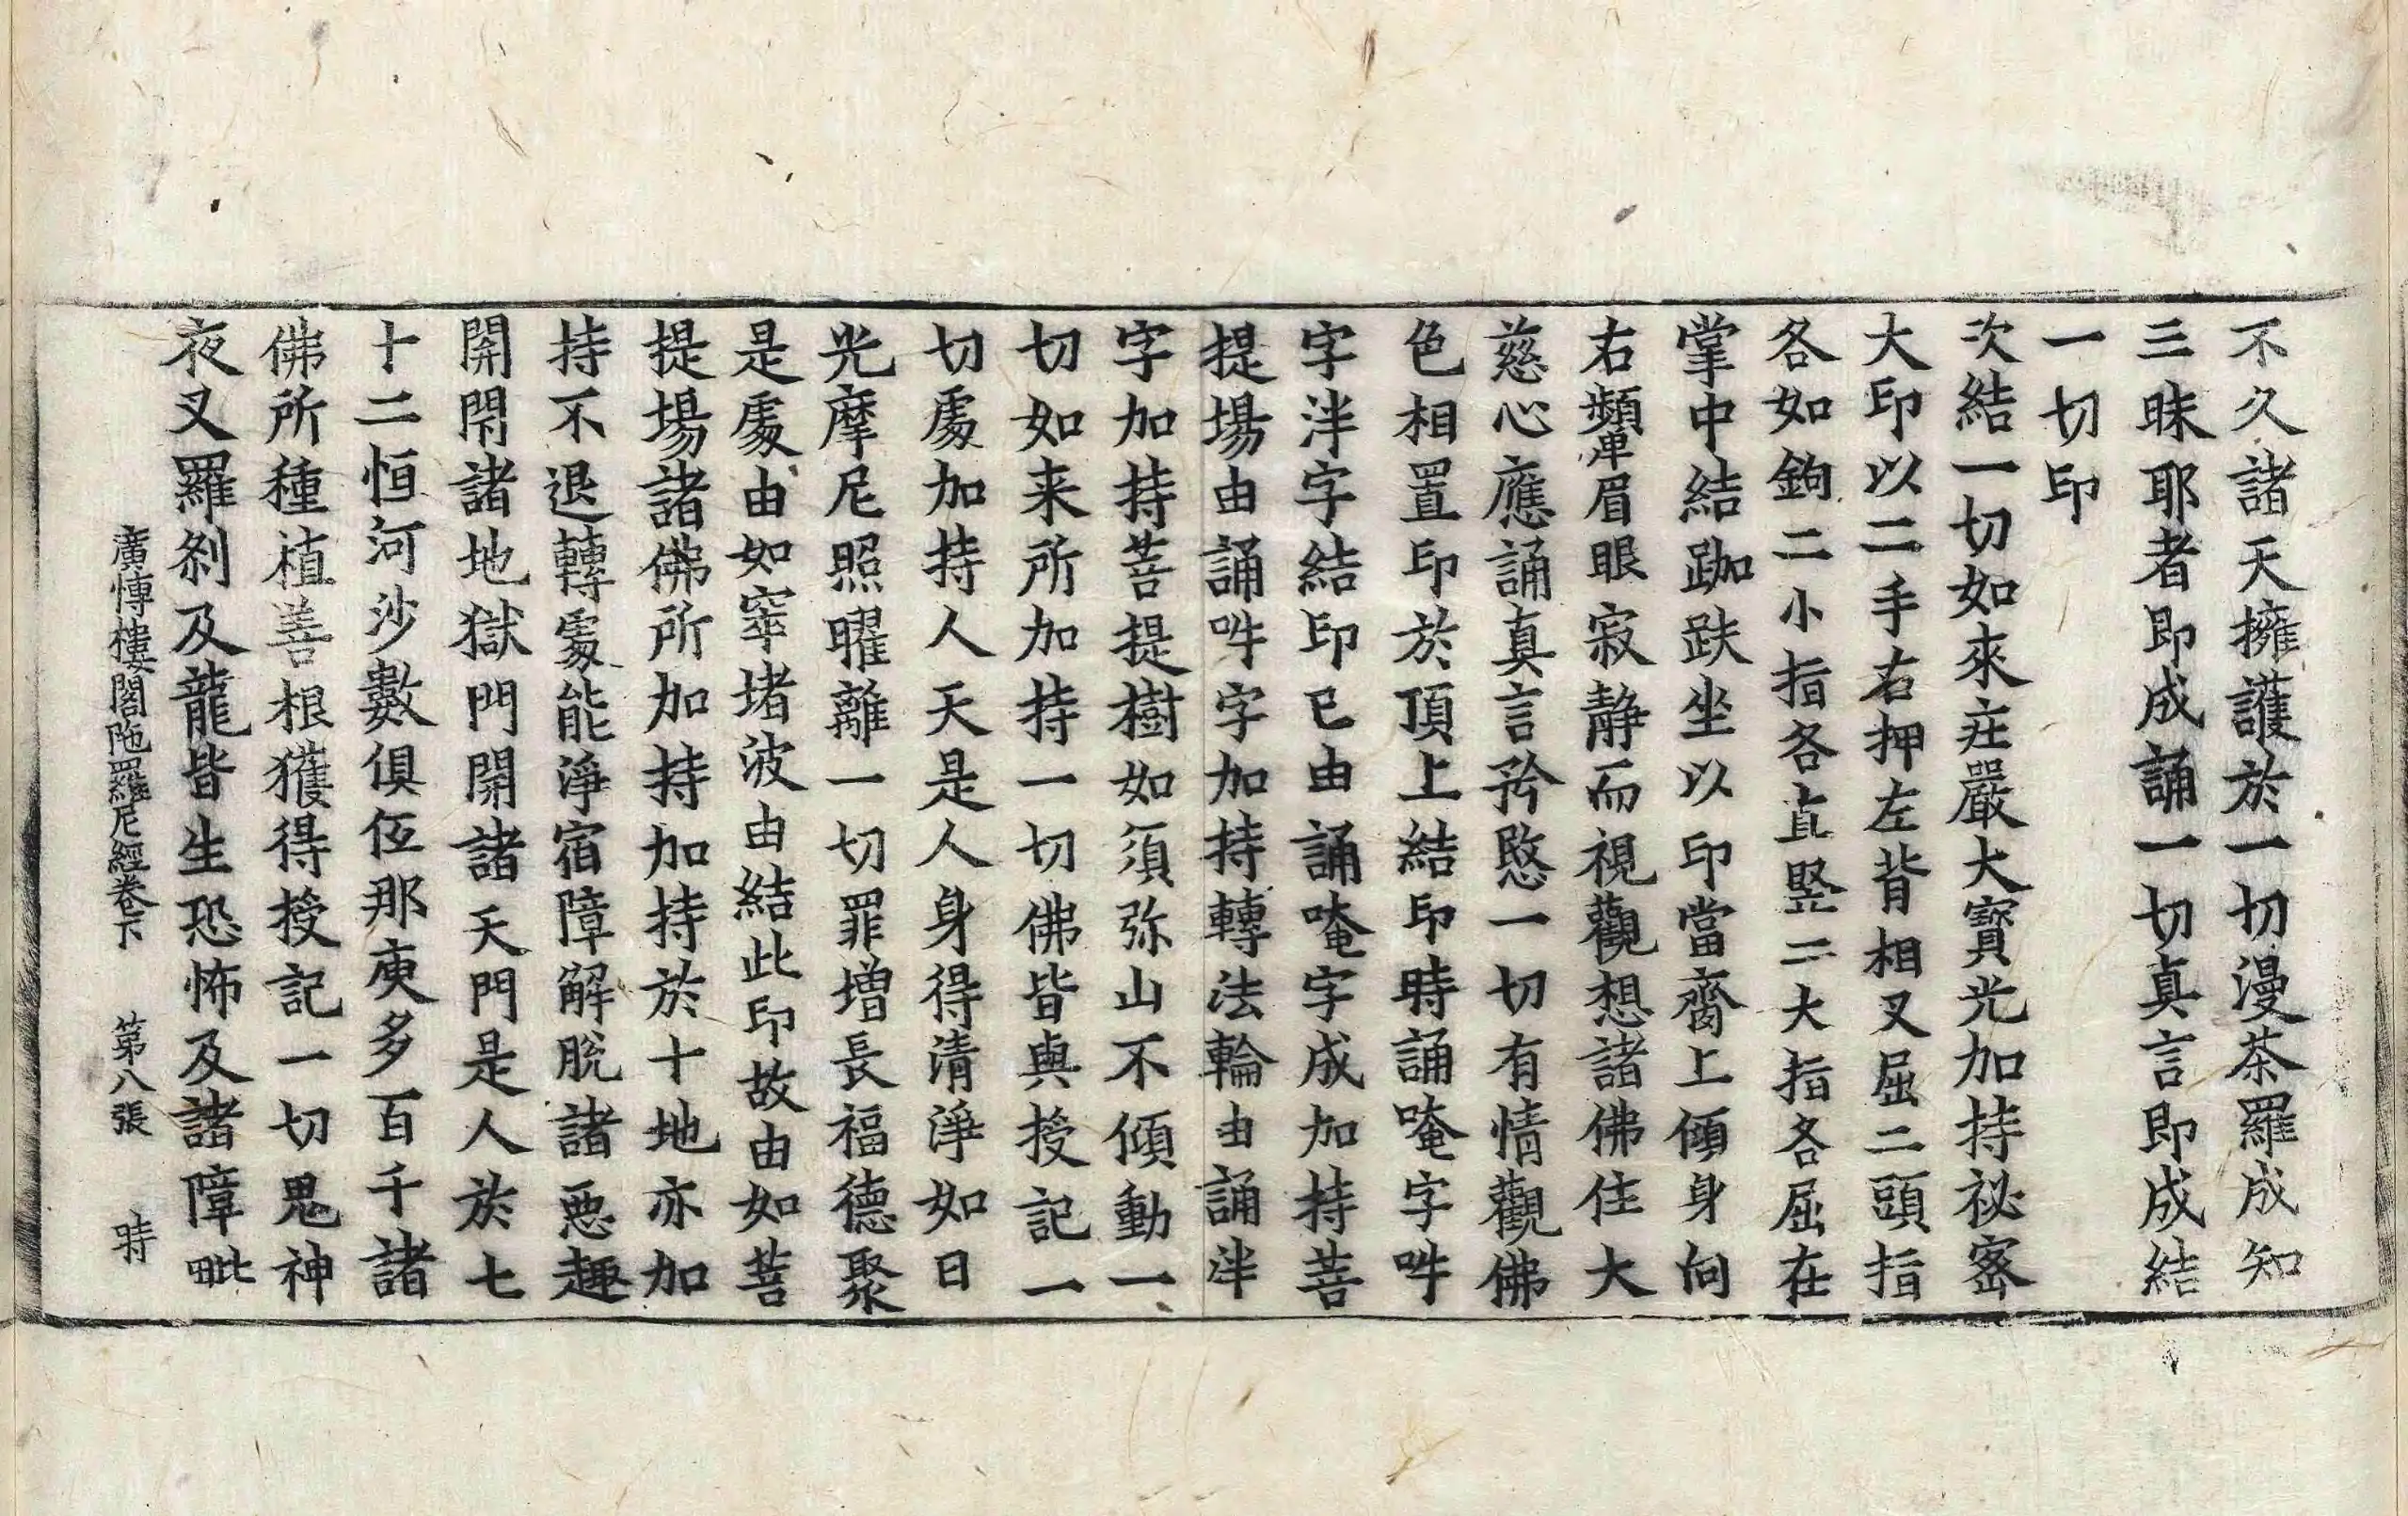 不久諸天擁護於一切漫茶羅成知
三昧耶者即成誦一切真言即成結
一切印
次結一切如來莊嚴大寶光加持祕密
大印以二手右押左背相叉屈二頭指
各如鉤二小指各直竪二大指各屈在
掌中結跏趺坐以印當齎上傾身向
右顰眉眼寂静而視觀想諸佛住大
慈心應誦真言矜愍一切有情觀佛
色相置印於頂上結印時誦唵字吽
字泮字結印已由誦唵字成加持菩
提場由誦吽字加持轉法輪由誦泮
字加持菩提樹如須弥山不傾動一
切如来所加持一切佛皆與授記一
切處加持人天是人身得清淨如日
光摩尼照曜離一切罪增長福德聚
是處由如窣堵波由結此印故由如菩
提場諸佛所加持加持於十地亦加
持不退轉處能淨宿障解脫諸惡趣
開閇諸地獄門開諸天門是人於七
十二恒河沙數俱伍那庾多百千諸
佛所種植善根獲得授記一切鬼神
夜叉羅剎及龍皆生恐怖及諸障毗
廣愽樓閣陁羅尼經卷下 第八張 時